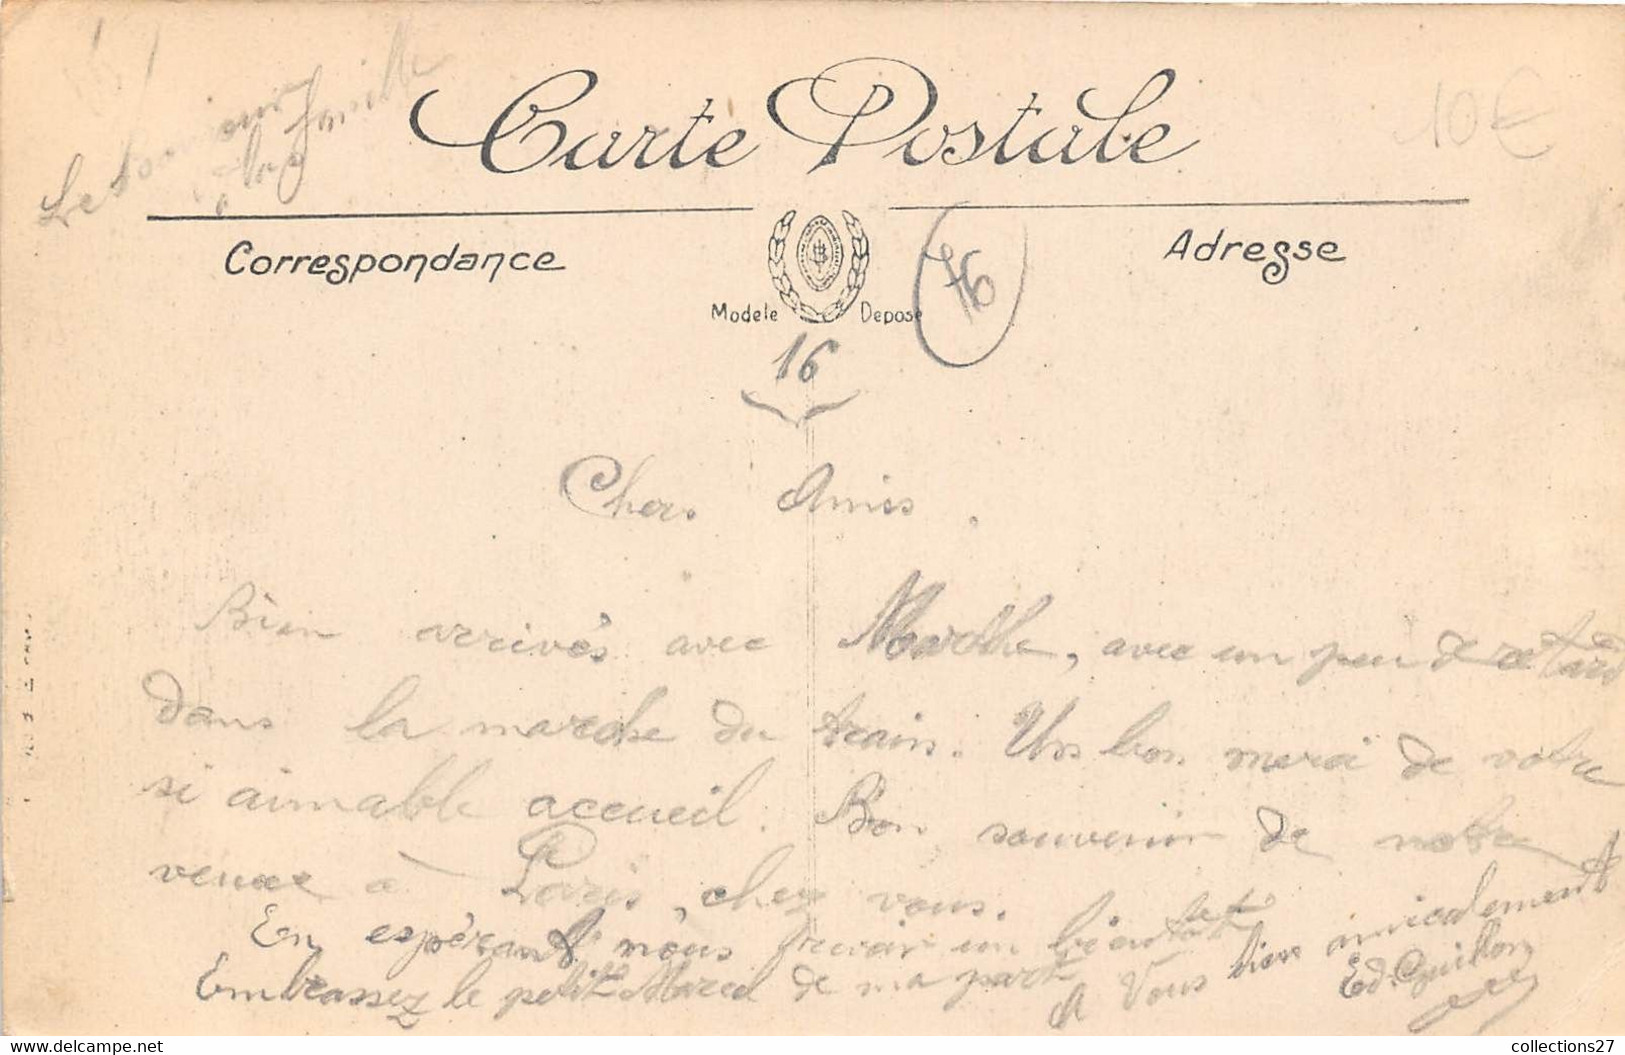 Le bonjour
à la famille
10€
Carte Postale
Correspondance
Adresse
Modele Deposé
76
16
Chers Amis.
Bien arrivés avec Marthe, avec un peu de retard
dans la marche du train. Un bon merci de votre
si aimable accueil. Bon souvenir de notre
venue à Paris, chez vous.
En espérant nous revoir un bientôt
Embrassez le petit Marcel de ma part
A Vous bien amicalement
Ed. Guillon
collections27